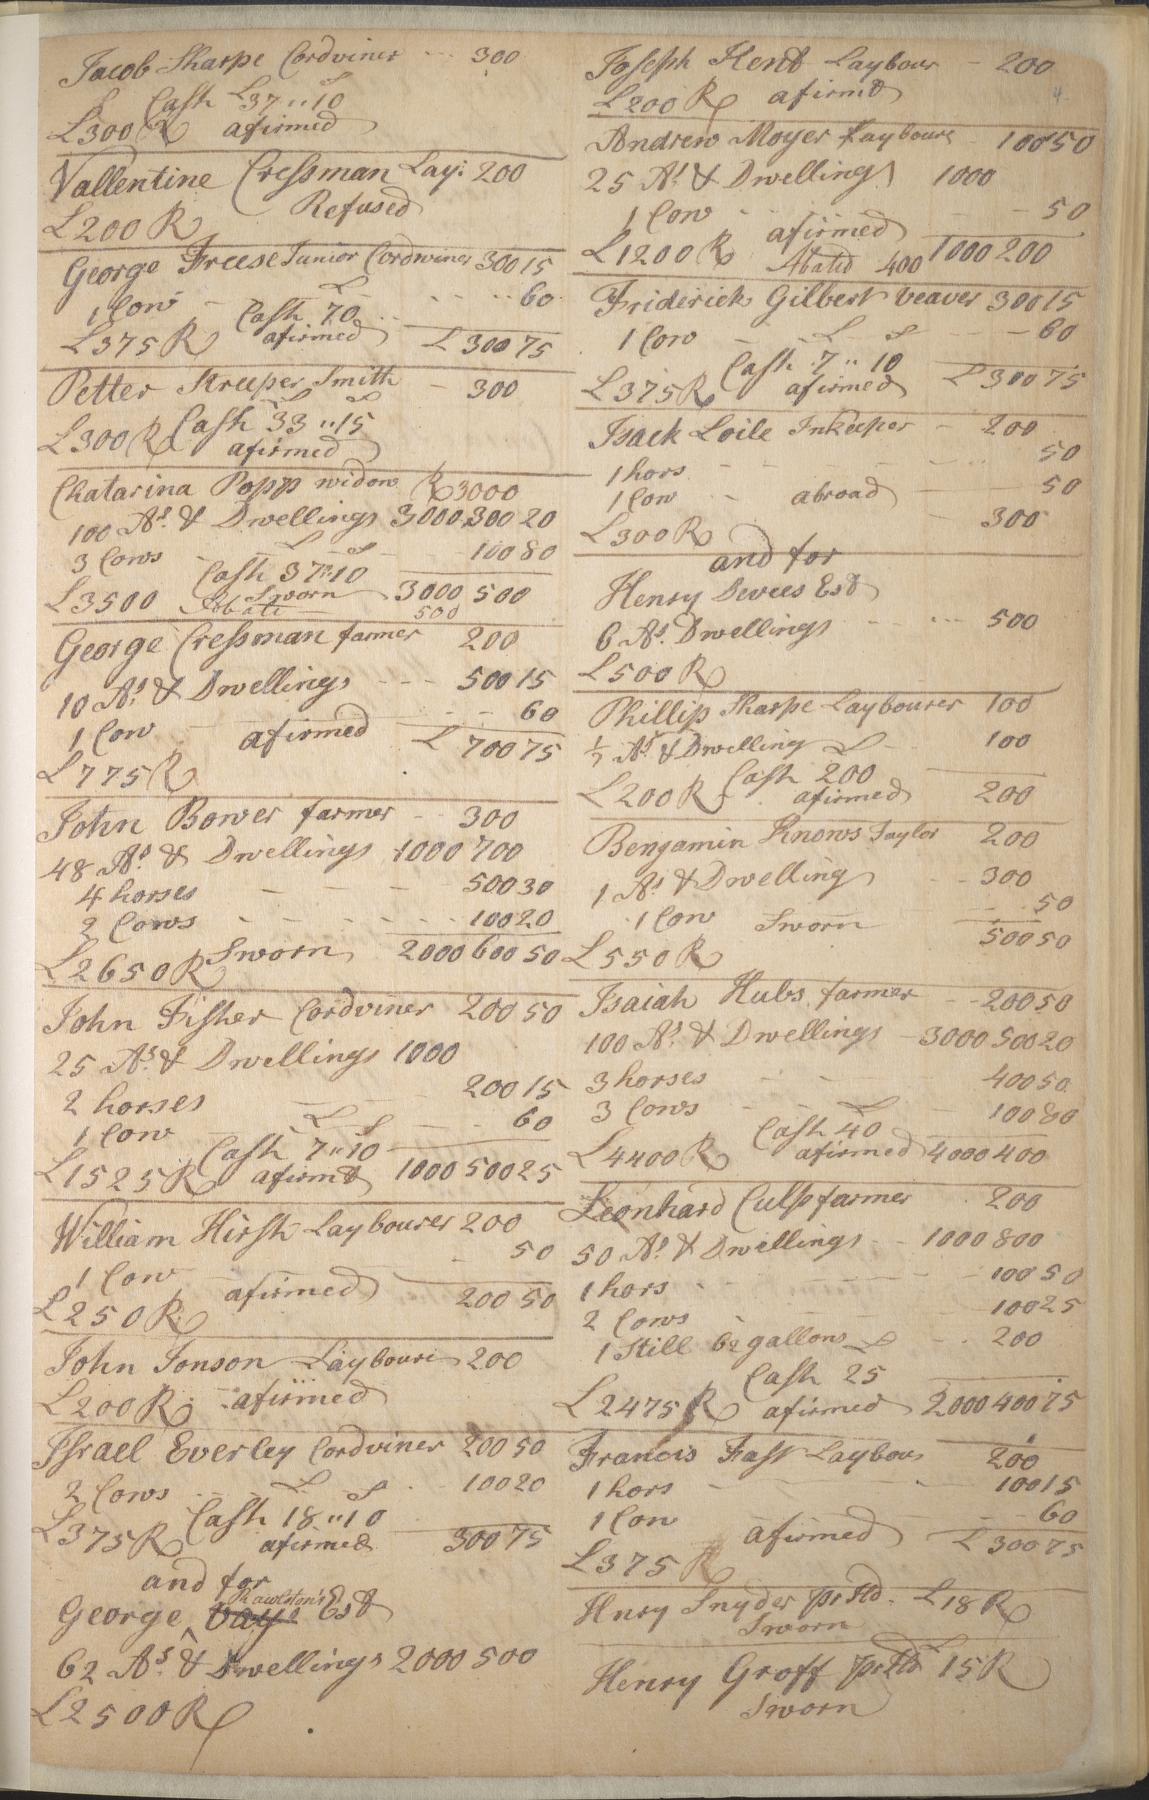 Jacob Sharpe Cordviner 300
Cash £37 " 10
£300 R afirmed
Vallentine Cressman Lay: 200
Refused
£200 R
George Freese Junior Cordwiner 300 15
1 Cow 60
Cash 70
£375 R afirmed £ 300 75
Petter Streeper Smith 300
Cash 33 " 15
£300 R afirmed
Chatarina Popp widow R 3000
100 As. & Dwellings 3000 300 20
3 Cows 100 80
Cash 37 " 10
£3500 Sworn 3000 500
Abate 500
George Cressman farmer 200
10 As. & Dwellings 500 15
1 Cow 60
afirmed £ 700 75
£775 R
John Bower farmer 300
48 As. & Dwellings 1000 700
4 horses 500 30
2 Cows 100 20
£2650 R Sworn 2000 600 50
John Fisher Cordviner 200 50
25 As. & Dwellings 1000
2 horses 200 15
1 Cow 60
Cash 7 " 10
£1525 R afirmd 1000 500 25
William Hirsh Laybourer 200
1 Cow 50
afirmed 200 50
£250 R
John Jonson Laybourer 200
£200 R afirmed
Israel Everley Cordviner 200 50
2 Cows 100 20
Cash 18 " 10
£375 R afirmed 300 75
and for
Rawlston's
George Vaye Est
62 As. & Dwellings 2000 500
£2500 R
4
Joseph Hent Laybour 200
£200 R afirmd
Andrew Moyer Laybour 100 50
25 As. & Dwelling 1000
1 Cow 50
afirmed
£1200 R Abated 400 1000 200
Friderick Gilbert veaver 300 15
1 Cow 60
Cash 7 " 10
£375 R afirmed £ 300 75
Isaek Loile Inkeeper 200
1 hors 50
1 Cow abroad 50
£300 R 300
and for
Henry Dewees Est
6 As. Dwellings 500
£500 R
Phillip Sharpe Laybourer 100
½ As. & Dwelling 100
Cash 200
£200 R afirmed 200
Bengamin Knows Taylor 200
1 As. & Dwelling 300
1 Cow Sworn 50
£550 R 500 50
Isaiah Hubs farmer 200 50
100 As. & Dwellings 3000 500 20
3 horses 400 50
3 Cows 100 80
Cash 40
£4400 R afirmed 4000 400
Leonhard Culp farmer 200
50 As. & Dwellings 1000 800
1 hors 100 50
2 Cows 100 25
1 Still 62 gallons 200
Cash 25
£2475 R afirmed 2000 400 75
Francis Fast Laybour 200
1 hors 100 15
1 Cow 60
afirmed £ 300 75
£375 R
Hnry Snyder pr Hd. £18 R
Sworn
Henry Groff pr Hd £15 R
Sworn